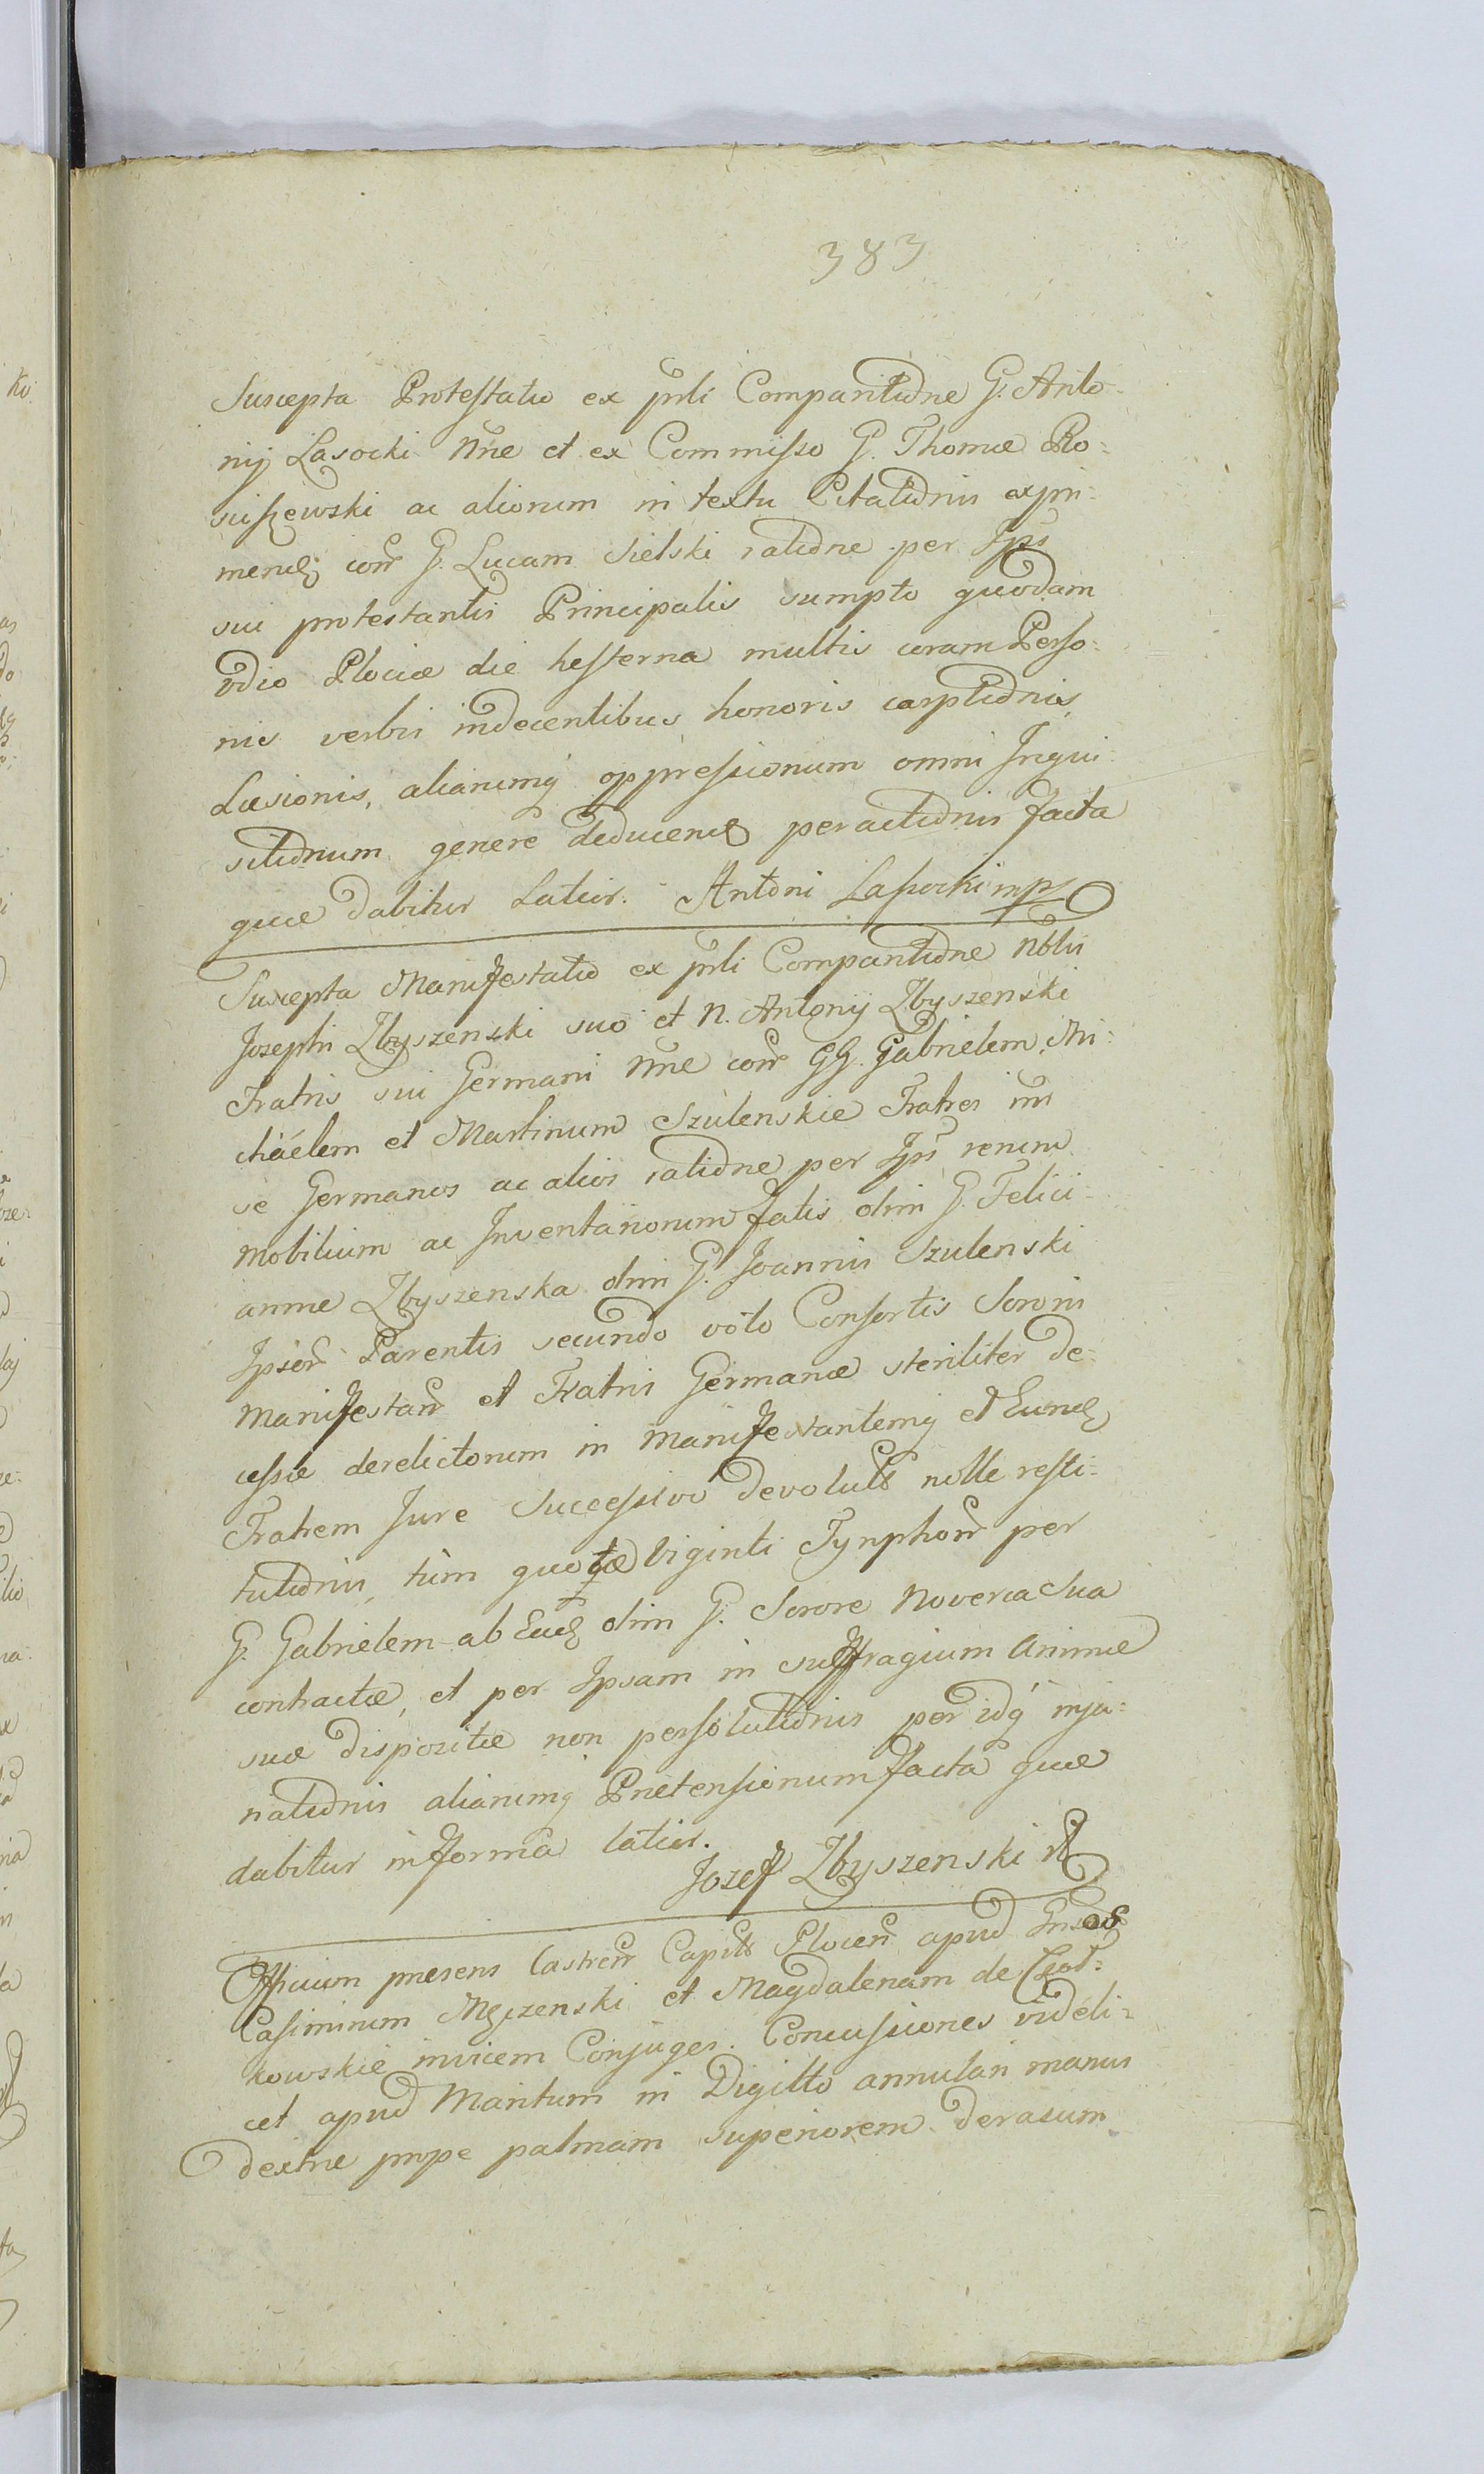 383
Suscepta Protestatio ex pnli Comparitione G. Anto-
nij Lasocki Nne et ex Commisso G. Thomæ Ro:
sciszewski ac aliorum in textu Citationis expri:
mend; con͠ G. Lucam Sielski ratione per Ips
sui protestantis Principalis sumpto quodam
odio Plociæ die hesterna multis coram Perso:
nis verbis indecentibus honoris carptionis,
Læsionis, aliarumq oppressionum omni Inqui:
sitionum genere deducend peractionis facta
quæ dabitur Latior. Antoni Lassocki mp
Suscepta Manifestatio ex pnli Comparitione Nblis
Josephi Zbyszenski suo et N. Antonij Zbyszenski
Fratris sui Germani Nne con͠ GG. Gabrielem, Mi:
chäélem et Martinum Szulenskie Fratres int͠
se Germanos ac alios ratione per Ips͠ rerum
mobilium ac Inventariorum fatis olim G. Felici:
annæ Zbyszenska olim G. Joannis Szulenski
Ipsor͠ Parentis secundo voto Consortis Sororis
Manifestan͠ et Fratris Germanæ steriliter de:
cessæ derelictorum in manifestantemq et Eund,
Fratrem Jure Successivo devolut nolle resti:
tutionis, tùm quotæ Viginti Tynphon͠ per
G. Gabrielem ab Ead; olim G. Sorore Noverca Sua
contractæ, et per Ipsam in suffragium Animæ
suæ dispozitæ non persolutionis per idq́ inju:
riationis aliarumq Prætensionum facta quæ
dabitur in forma latior.
Jozef Zbyszenski
Officium præsens Castren͠ Capit Plocen͠ apud Gnsos
Casimirum Męczenski et Magdalenam de Czot:
kowskie invicem Conjuges. Concussiones videli:
cet apud Maritum in Digitto annulari manus
dextræ prope palmam superiorem derasum